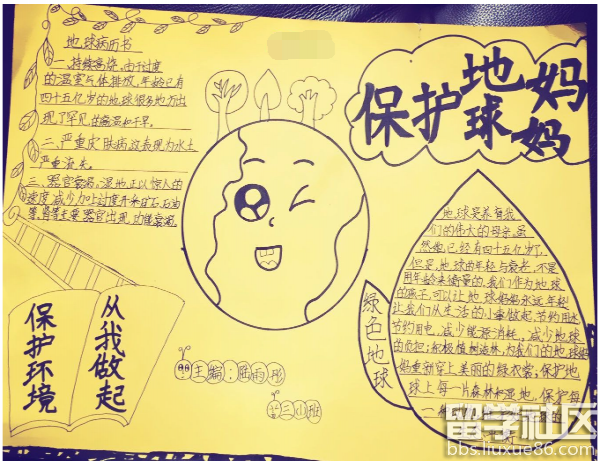 地球病历书
一、持续高烧,由于过度
的温室气体排放,年龄已有
四十五亿岁的地球很多地方出
现了罕见的高温和干旱。
二、严重皮肤病,这表现为水土
严重流失。
三、器官衰竭,湿地正以惊人的
速度减少,加上过度开采矿石,石油
等,肾等主要器官出现功能衰竭。
保护地球妈妈
地球是养育我
们的伟大的母亲,虽
然她已经有四十五亿岁了,
但是,地球的年轻与衰老,不是
用年龄来衡量的,我们作为地球
的孩子,可以让地球妈妈永远年轻
让我们从生活的小事做起,节约用水
节约用电,减少能源消耗,减少地球
的负担;积极植树造林,为我们的地球妈
妈重新穿上美丽的绿衣裳;保护地
球上每一片森林和湿地,保护每
一
绿色地球
从我做起
保护环境
主编:陈雨彤
三小班
留学社区
bbs.liuxue86.com